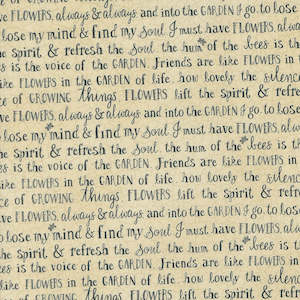 FLOWERS, always & always and into the GARDEN I go, to
lose my mind & find my Soul. I must have FLOWERS, alwa
the Spirit & refresh the Soul. the hum of the bees is th
is the voice of the GARDEN. Friends are like FLOWERS in
like FLOWERS in the GARDEN of life. how lovely the silenc
ce of GROWING things. FLOWERS lift the Spirit & refres
ve FLOWERS, always & always and into the GARDEN I go, to los
to lose my mind & find my Soul. I must have FLOWERS, alwa
the Spirit & refresh the Soul. the hum of the bees is th
es is the voice of the GARDEN. Friends are like FLOWERS in t
like FLOWERS in the GARDEN of life. how lovely the silenc
ce of GROWING things. FLOWERS lift the Spirit & refres
ve FLOWERS, always & always and into the GARDEN I go, to los
to lose my mind & find my Soul. I must have FLOWERS, alwa
the Spirit & refresh the Soul. the hum of the bees is th
es is the voice of the GARDEN. Friends are like FLOWERS in
like FLOWERS in the GARDEN of life. how lovely the silenc
ce of GROWING things. FLOWERS lift the Spirit & refre